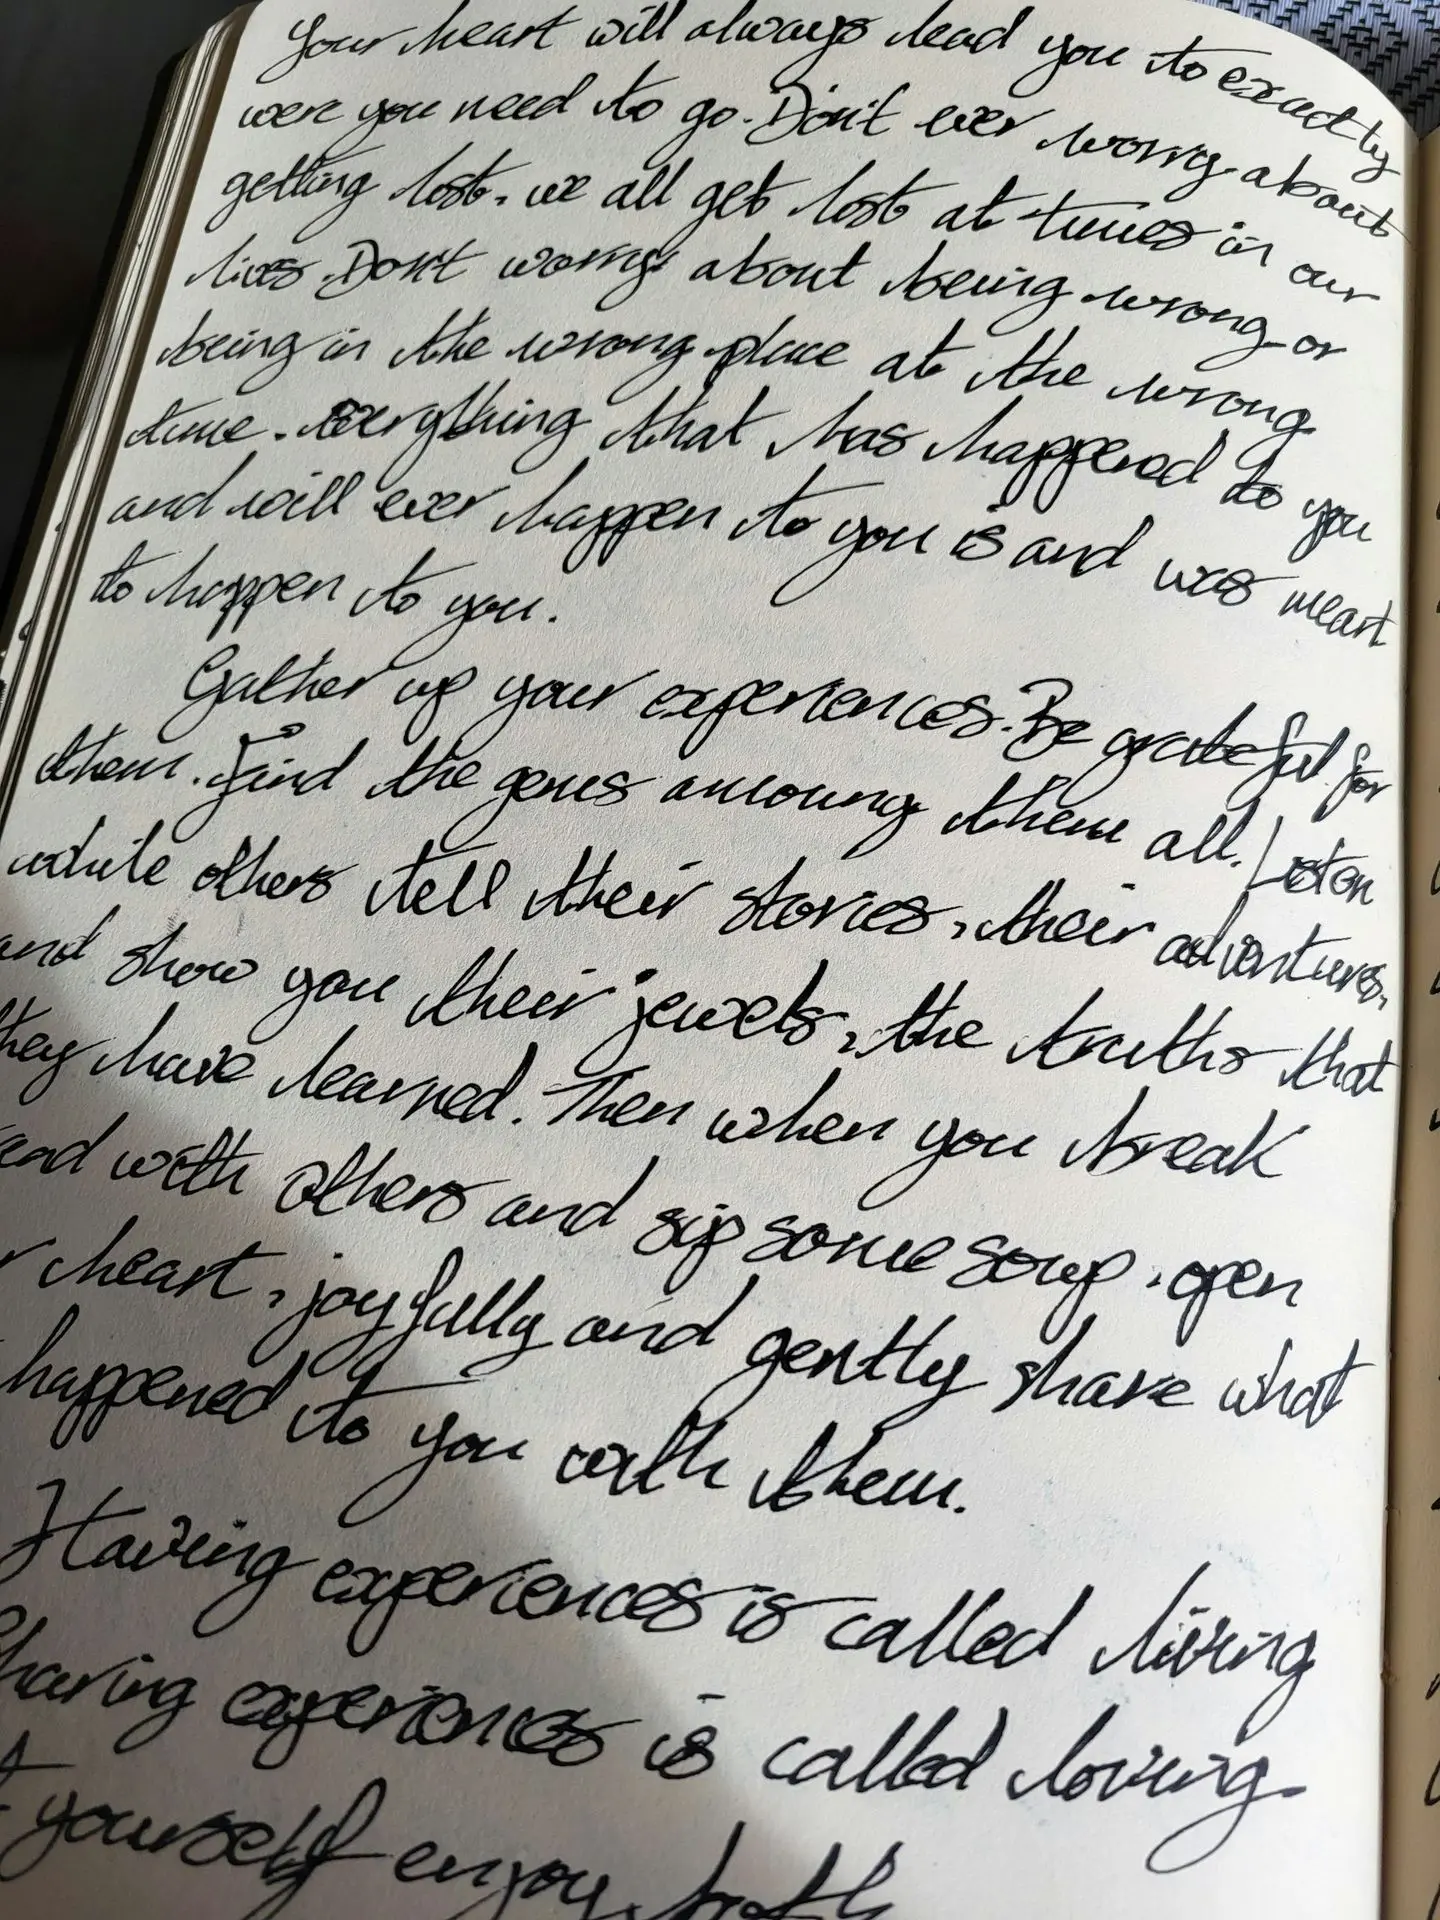 Your heart will always lead you to exactly
were you need to go. Don't ever worry about
getting lost, we all get lost at times in our
lives Don't worry about being wrong or
being in the wrong place at the wrong
time. Everything that has happened to you
and will ever happen to you is and was meant
to happen to you.
Gather up your experiences. Be grateful for
them. Find the gems amoung them all. Listen
while others tell their stories, their adventures,
and show you their jewels, the truths that
they have learned. Then when you break
ead with others and sip some soup, open
r heart, joyfully and gently share what
happened to you with them.
Having experiences is called living
Sharing experiences is called loving.
t yourself enjoy both